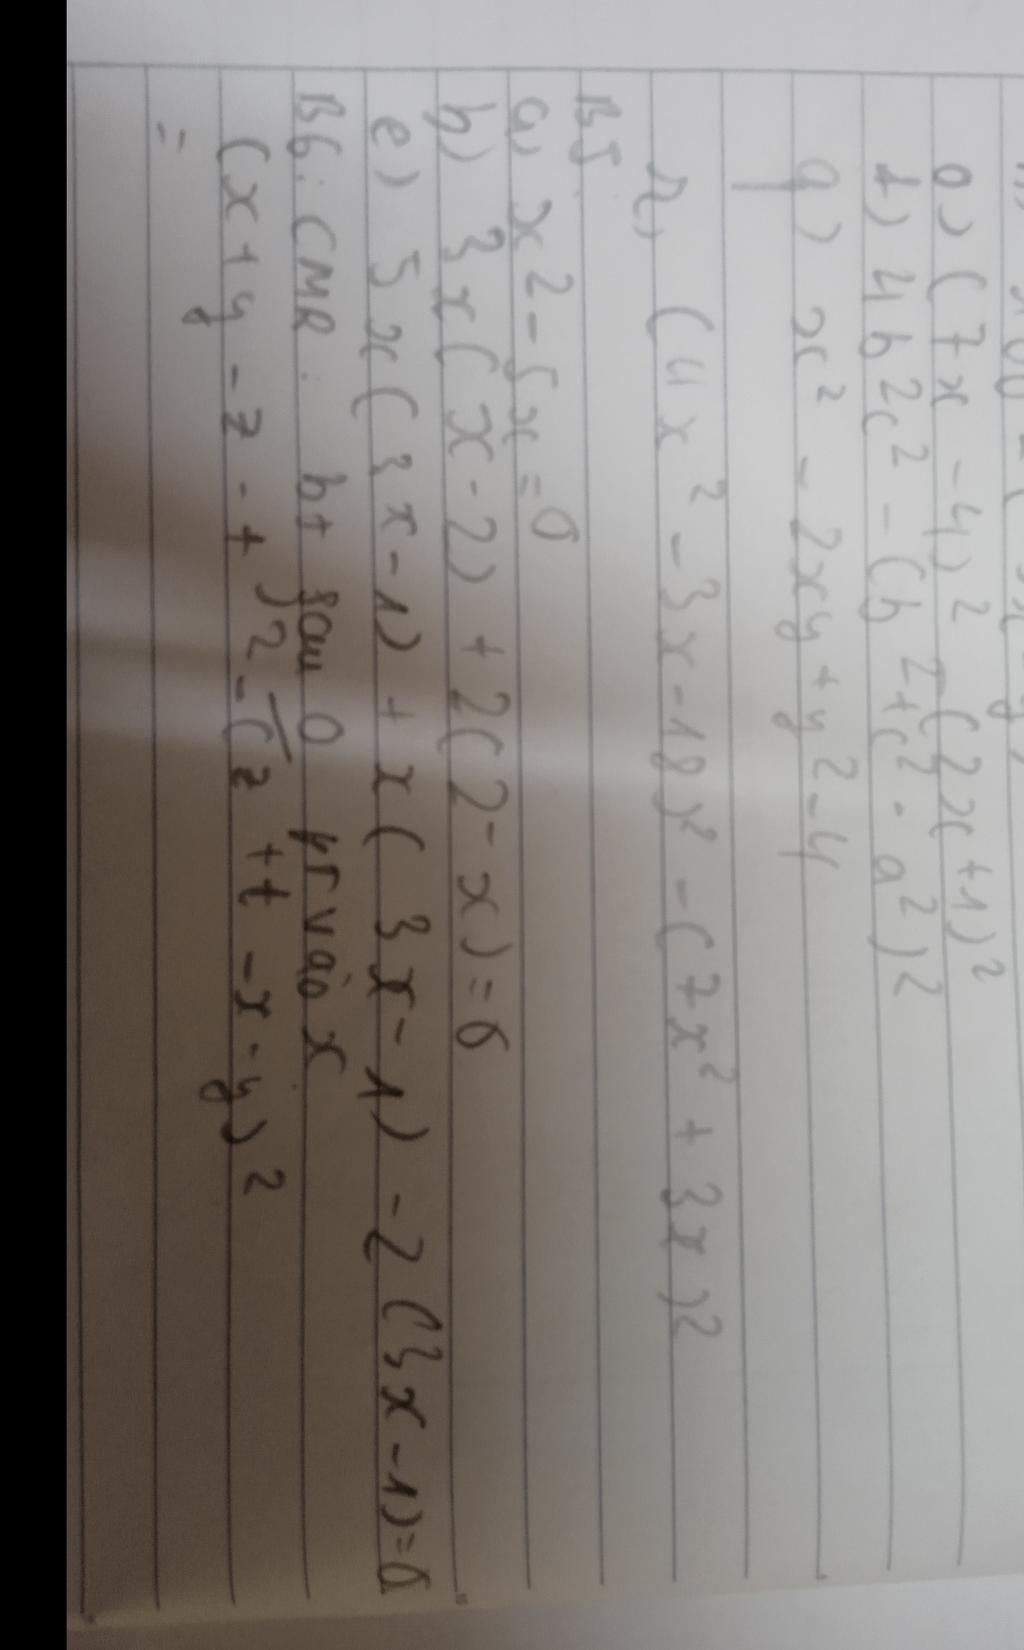 o) (7x - 4)² - (2x + 1)²
t) 4b²c² - (b² + c² - a²)²
q) x² - 2xy + y² - 4
r) (4x² - 3x - 18)² - (7x² + 3x)²
B5.
a) x² - 5x = 0
b) 3x(x - 2) + 2(2 - x) = 0
e) 5x(3x - 1) + x(3x - 1) - 2(3x - 1) = 0
B6: CMR: bt sau 0 PT vào x
(x + y - z - t)² - (z + t - x - y)²
=